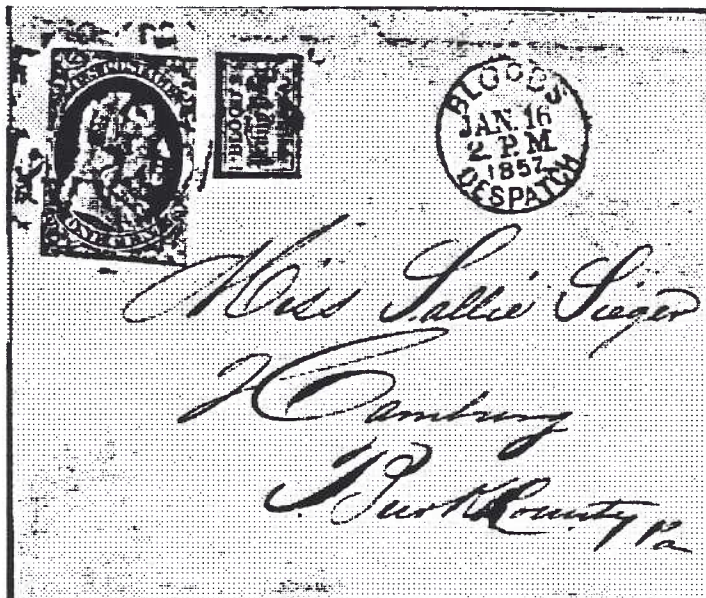 U.S. POSTAGE
BLOOD'S
Penny Post
BLOODS
JAN. 16
2. P. M.
1857
DESPATCH
Miss Sallie Sieger
Hamburg
Burk County Pa